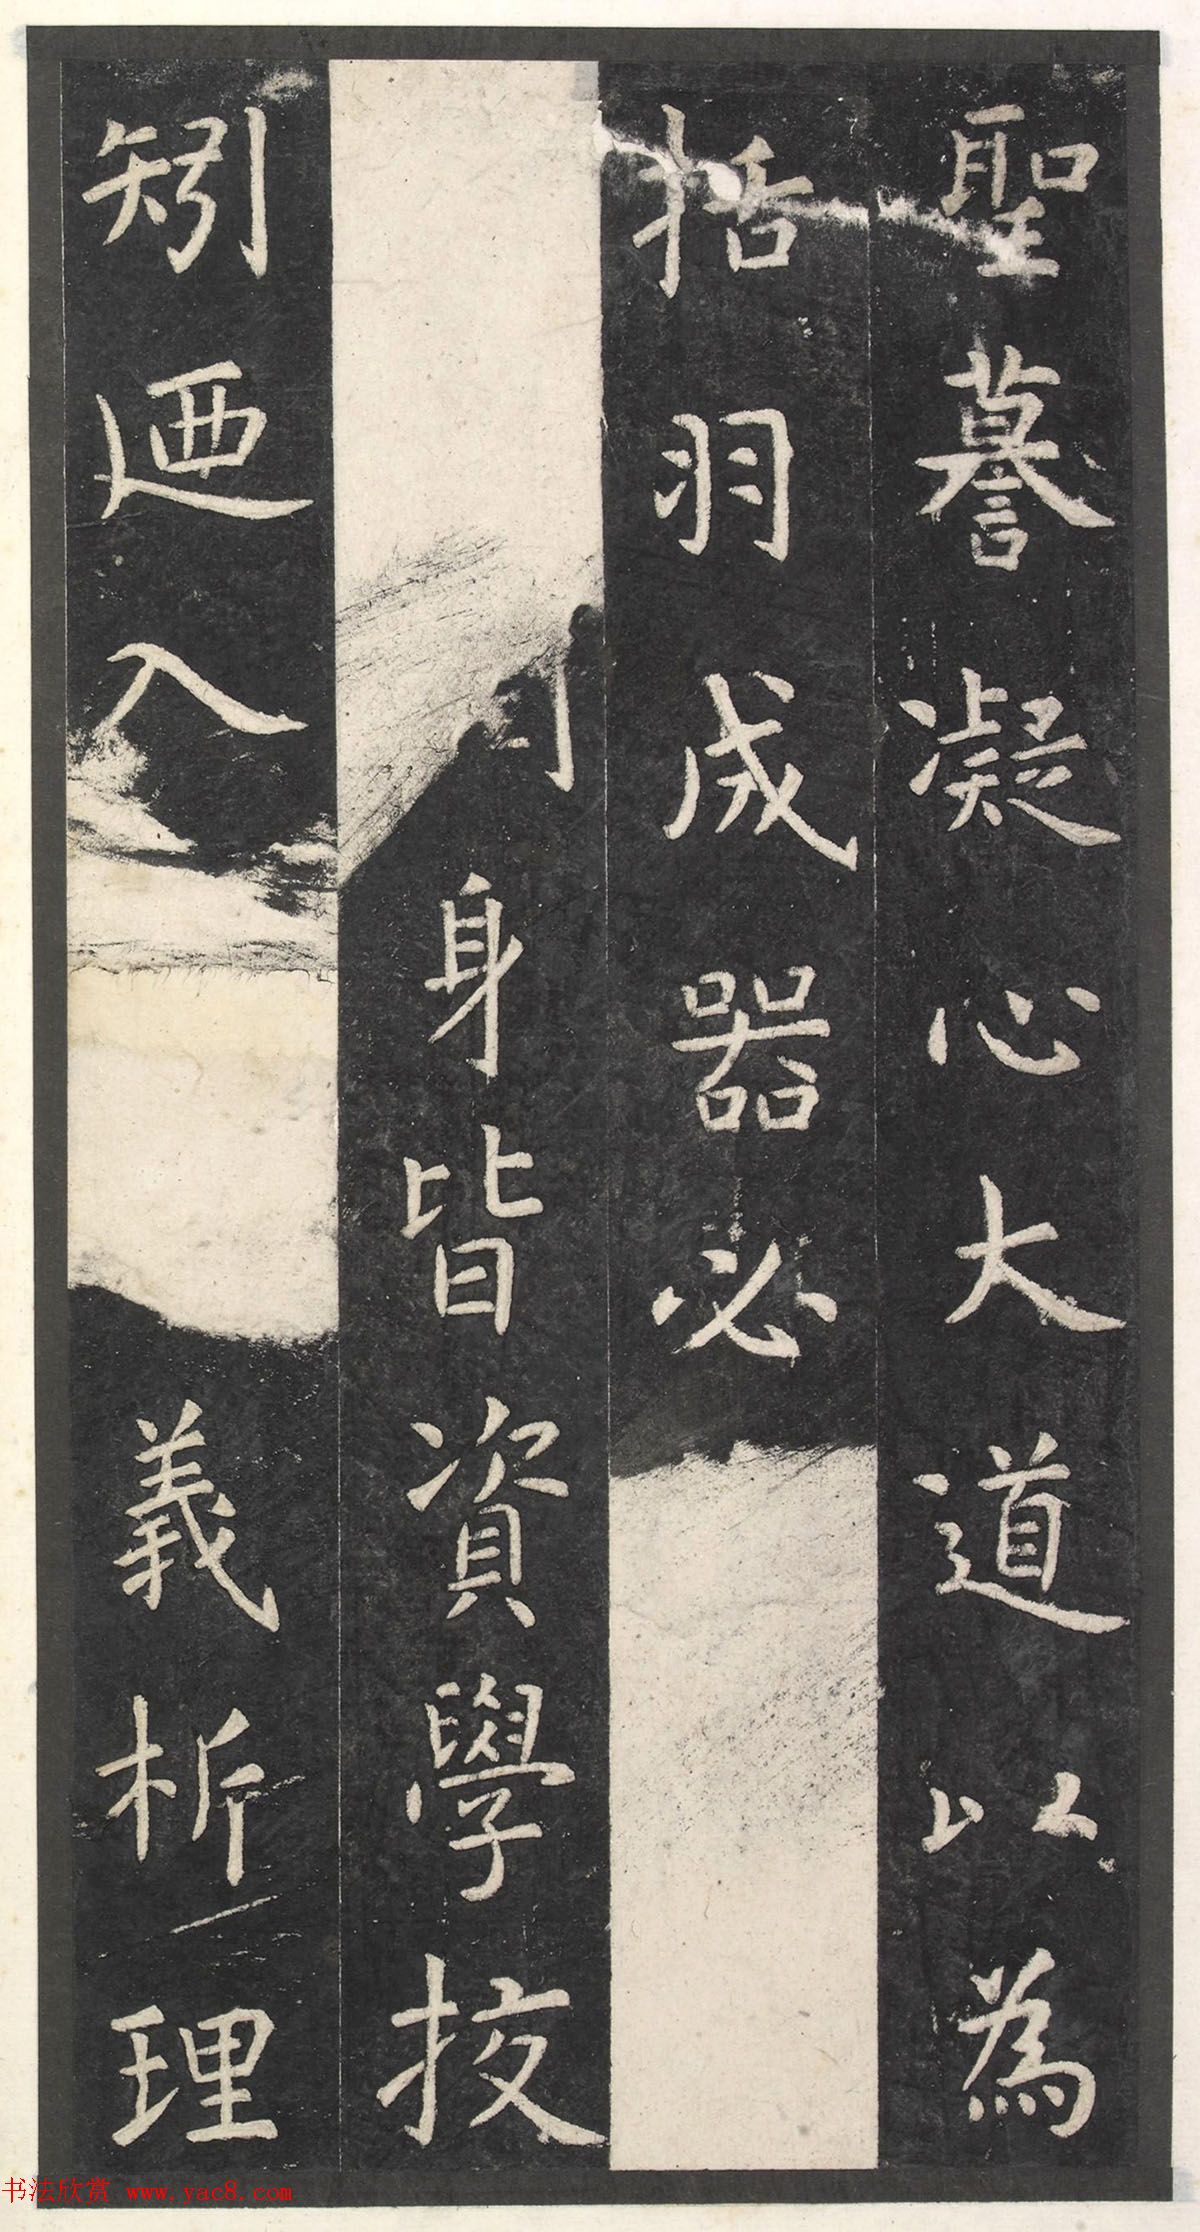 聖謩凝心大道以為
括羽成器必
身皆資學技
矧廼入
義析理
书法欣赏 www.yac8.com